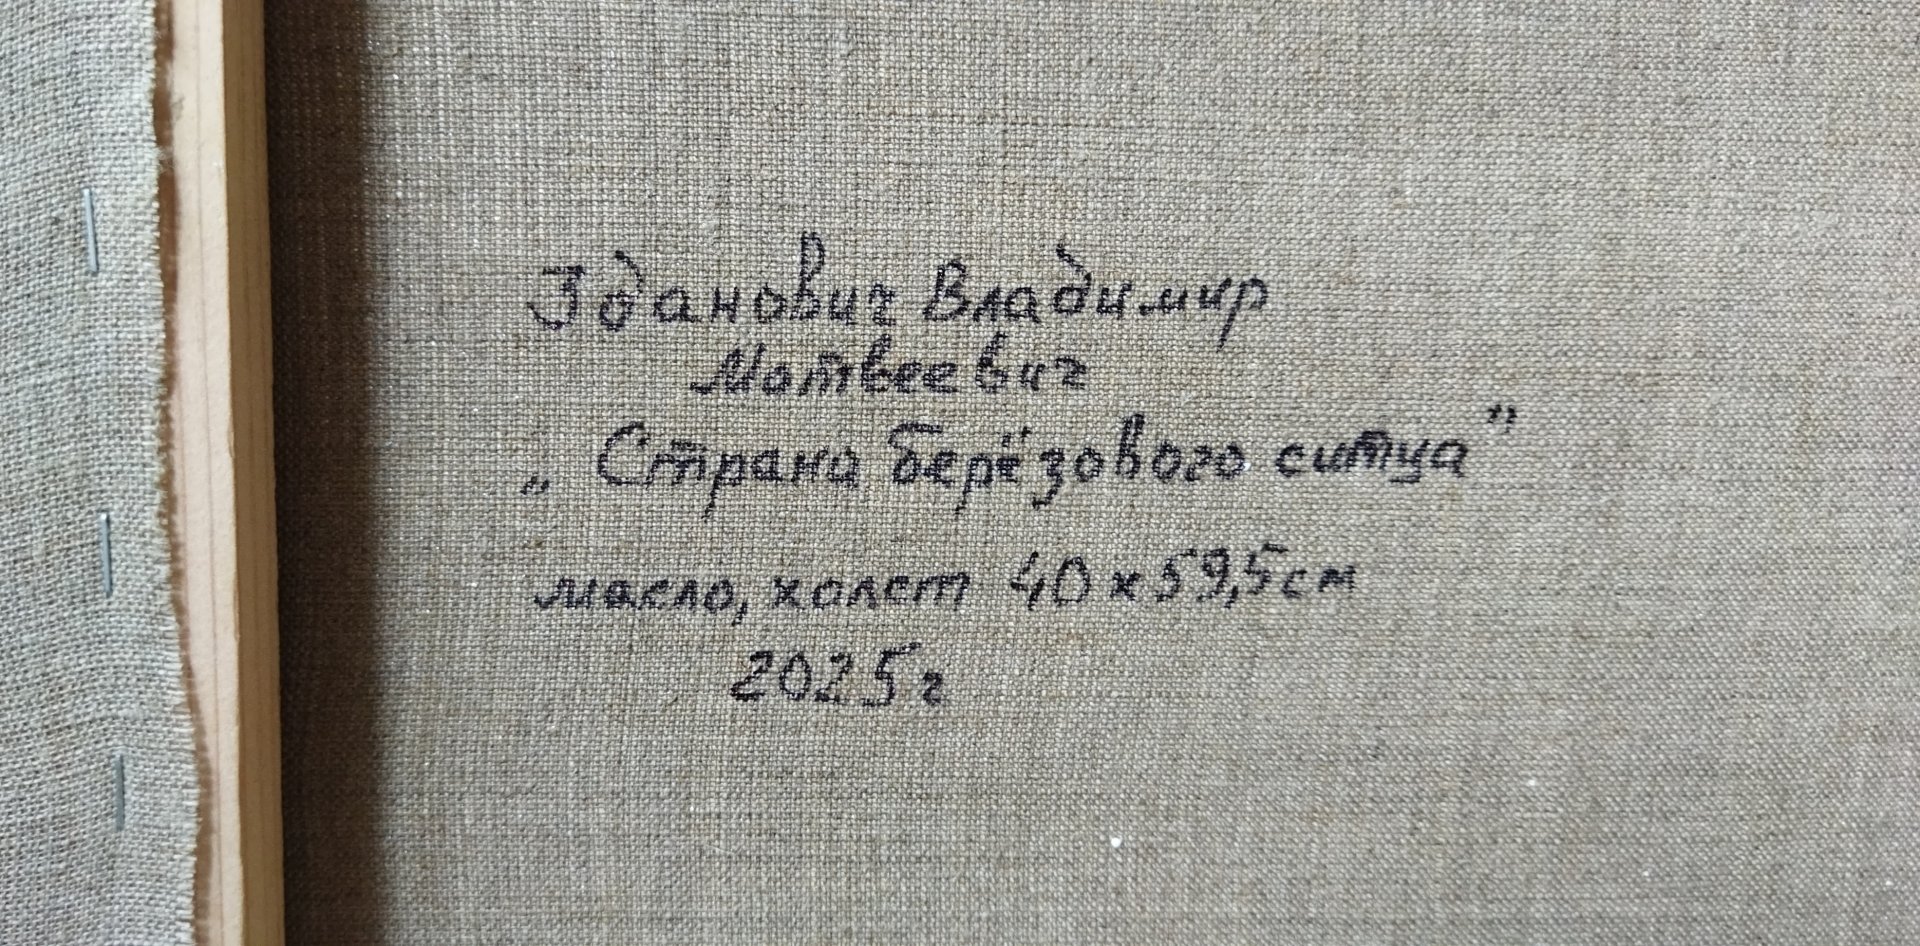 Зданович Владимир
Матвеевич
„Страна берёзового ситца”
масло, холст 40х59,5см
2025г